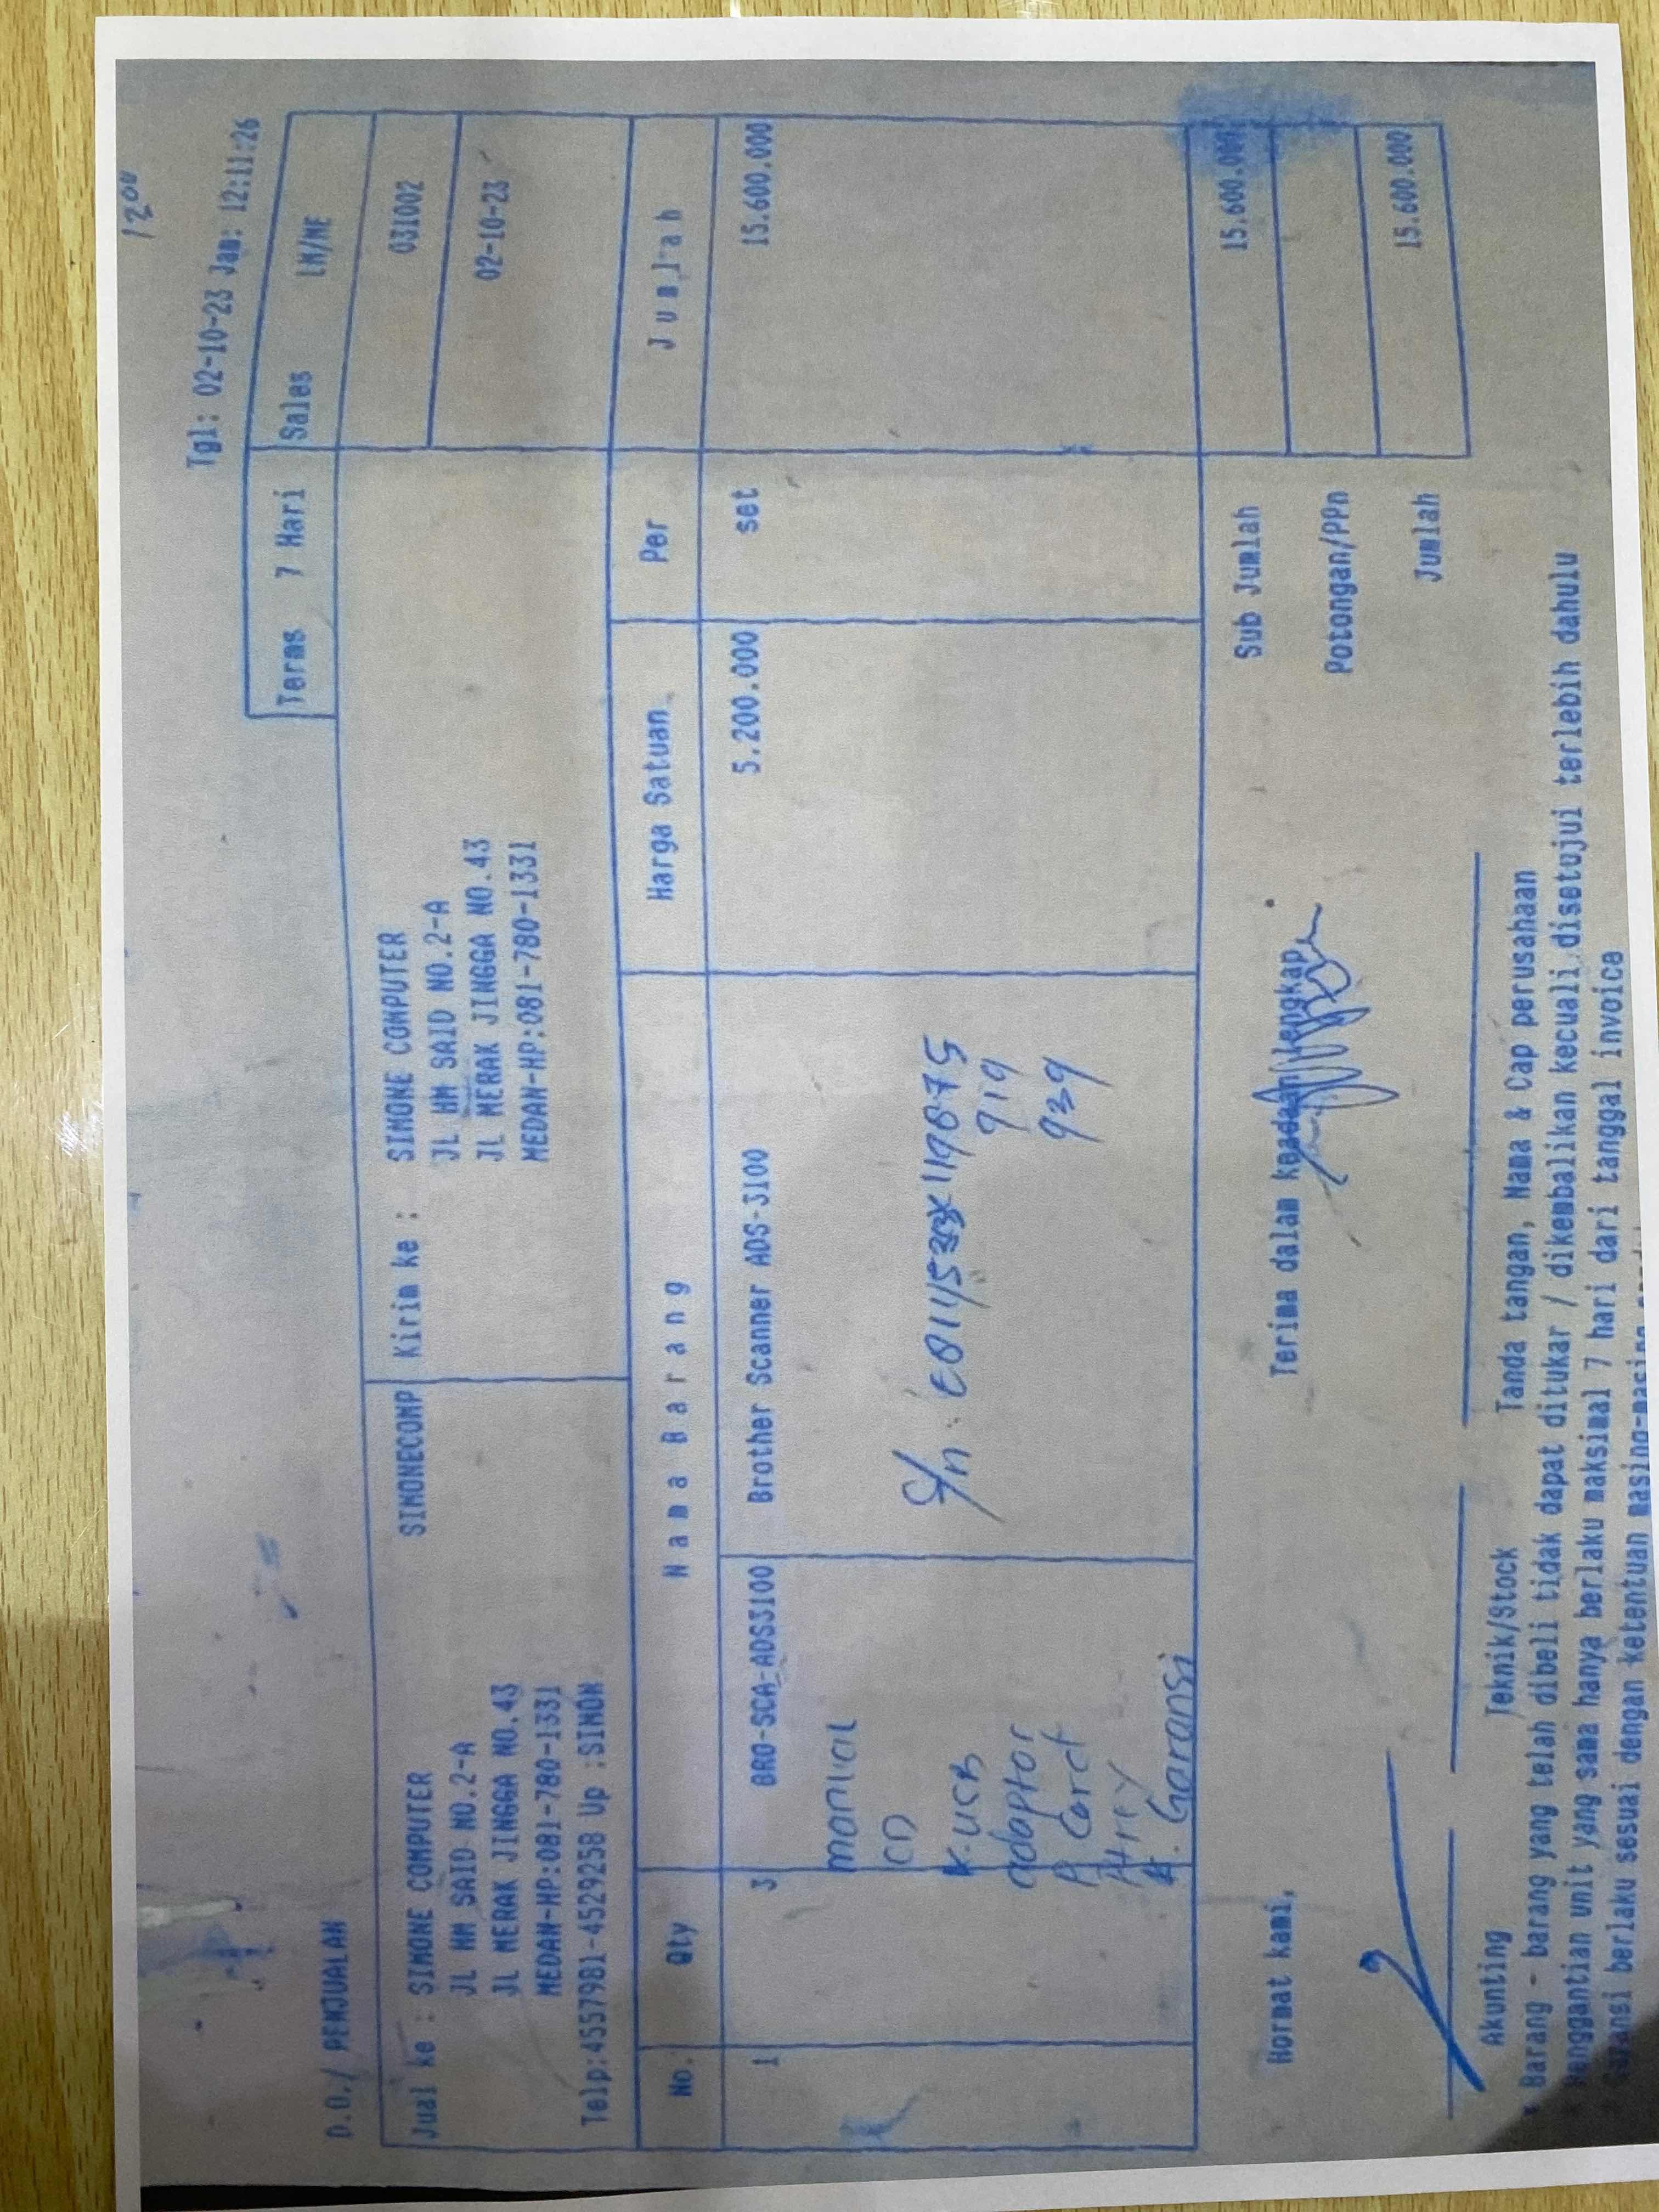 1200
Tgl: 02-10-23 Jam: 12:11:26
D.O./ PENJUALAN
Terms 7 Hari Sales LM/ME
Jual ke : SIMONE COMPUTER SIMONECOMP Kirim ke : SIMONE COMPUTER 031002
JL HM SAID NO.2-A JL HM SAID NO.2-A
JL MERAK JINGGA NO.43 JL MERAK JINGGA NO.43 02-10-23
MEDAN-HP:081-780-1331 MEDAN-HP:081-780-1331
Telp:4557981-4529258 Up :SIMON
No. Qty Nama Barang Harga Satuan Per Jumlah
1 3 BRO-SCA-ADS3100 Brother Scanner ADS-3100 5.200.000 set 15.600.000
manual
CD
K. USB
adaptor
Garansi
S/n :
919
939
Sub Jumlah 15.600.000
Hormat kami, Terima dalam keadaan lengkap
Potongan/PPn
Jumlah 15.600.000
Akunting Teknik/Stock Tanda tangan, Nama & Cap perusahaan
* Barang - barang yang telah dibeli tidak dapat ditukar / dikembalikan kecuali disetujui terlebih dahulu
penggantian unit yang sama hanya berlaku maksimal 7 hari dari tanggal invoice
Garansi berlaku sesuai dengan ketentuan masing-masing